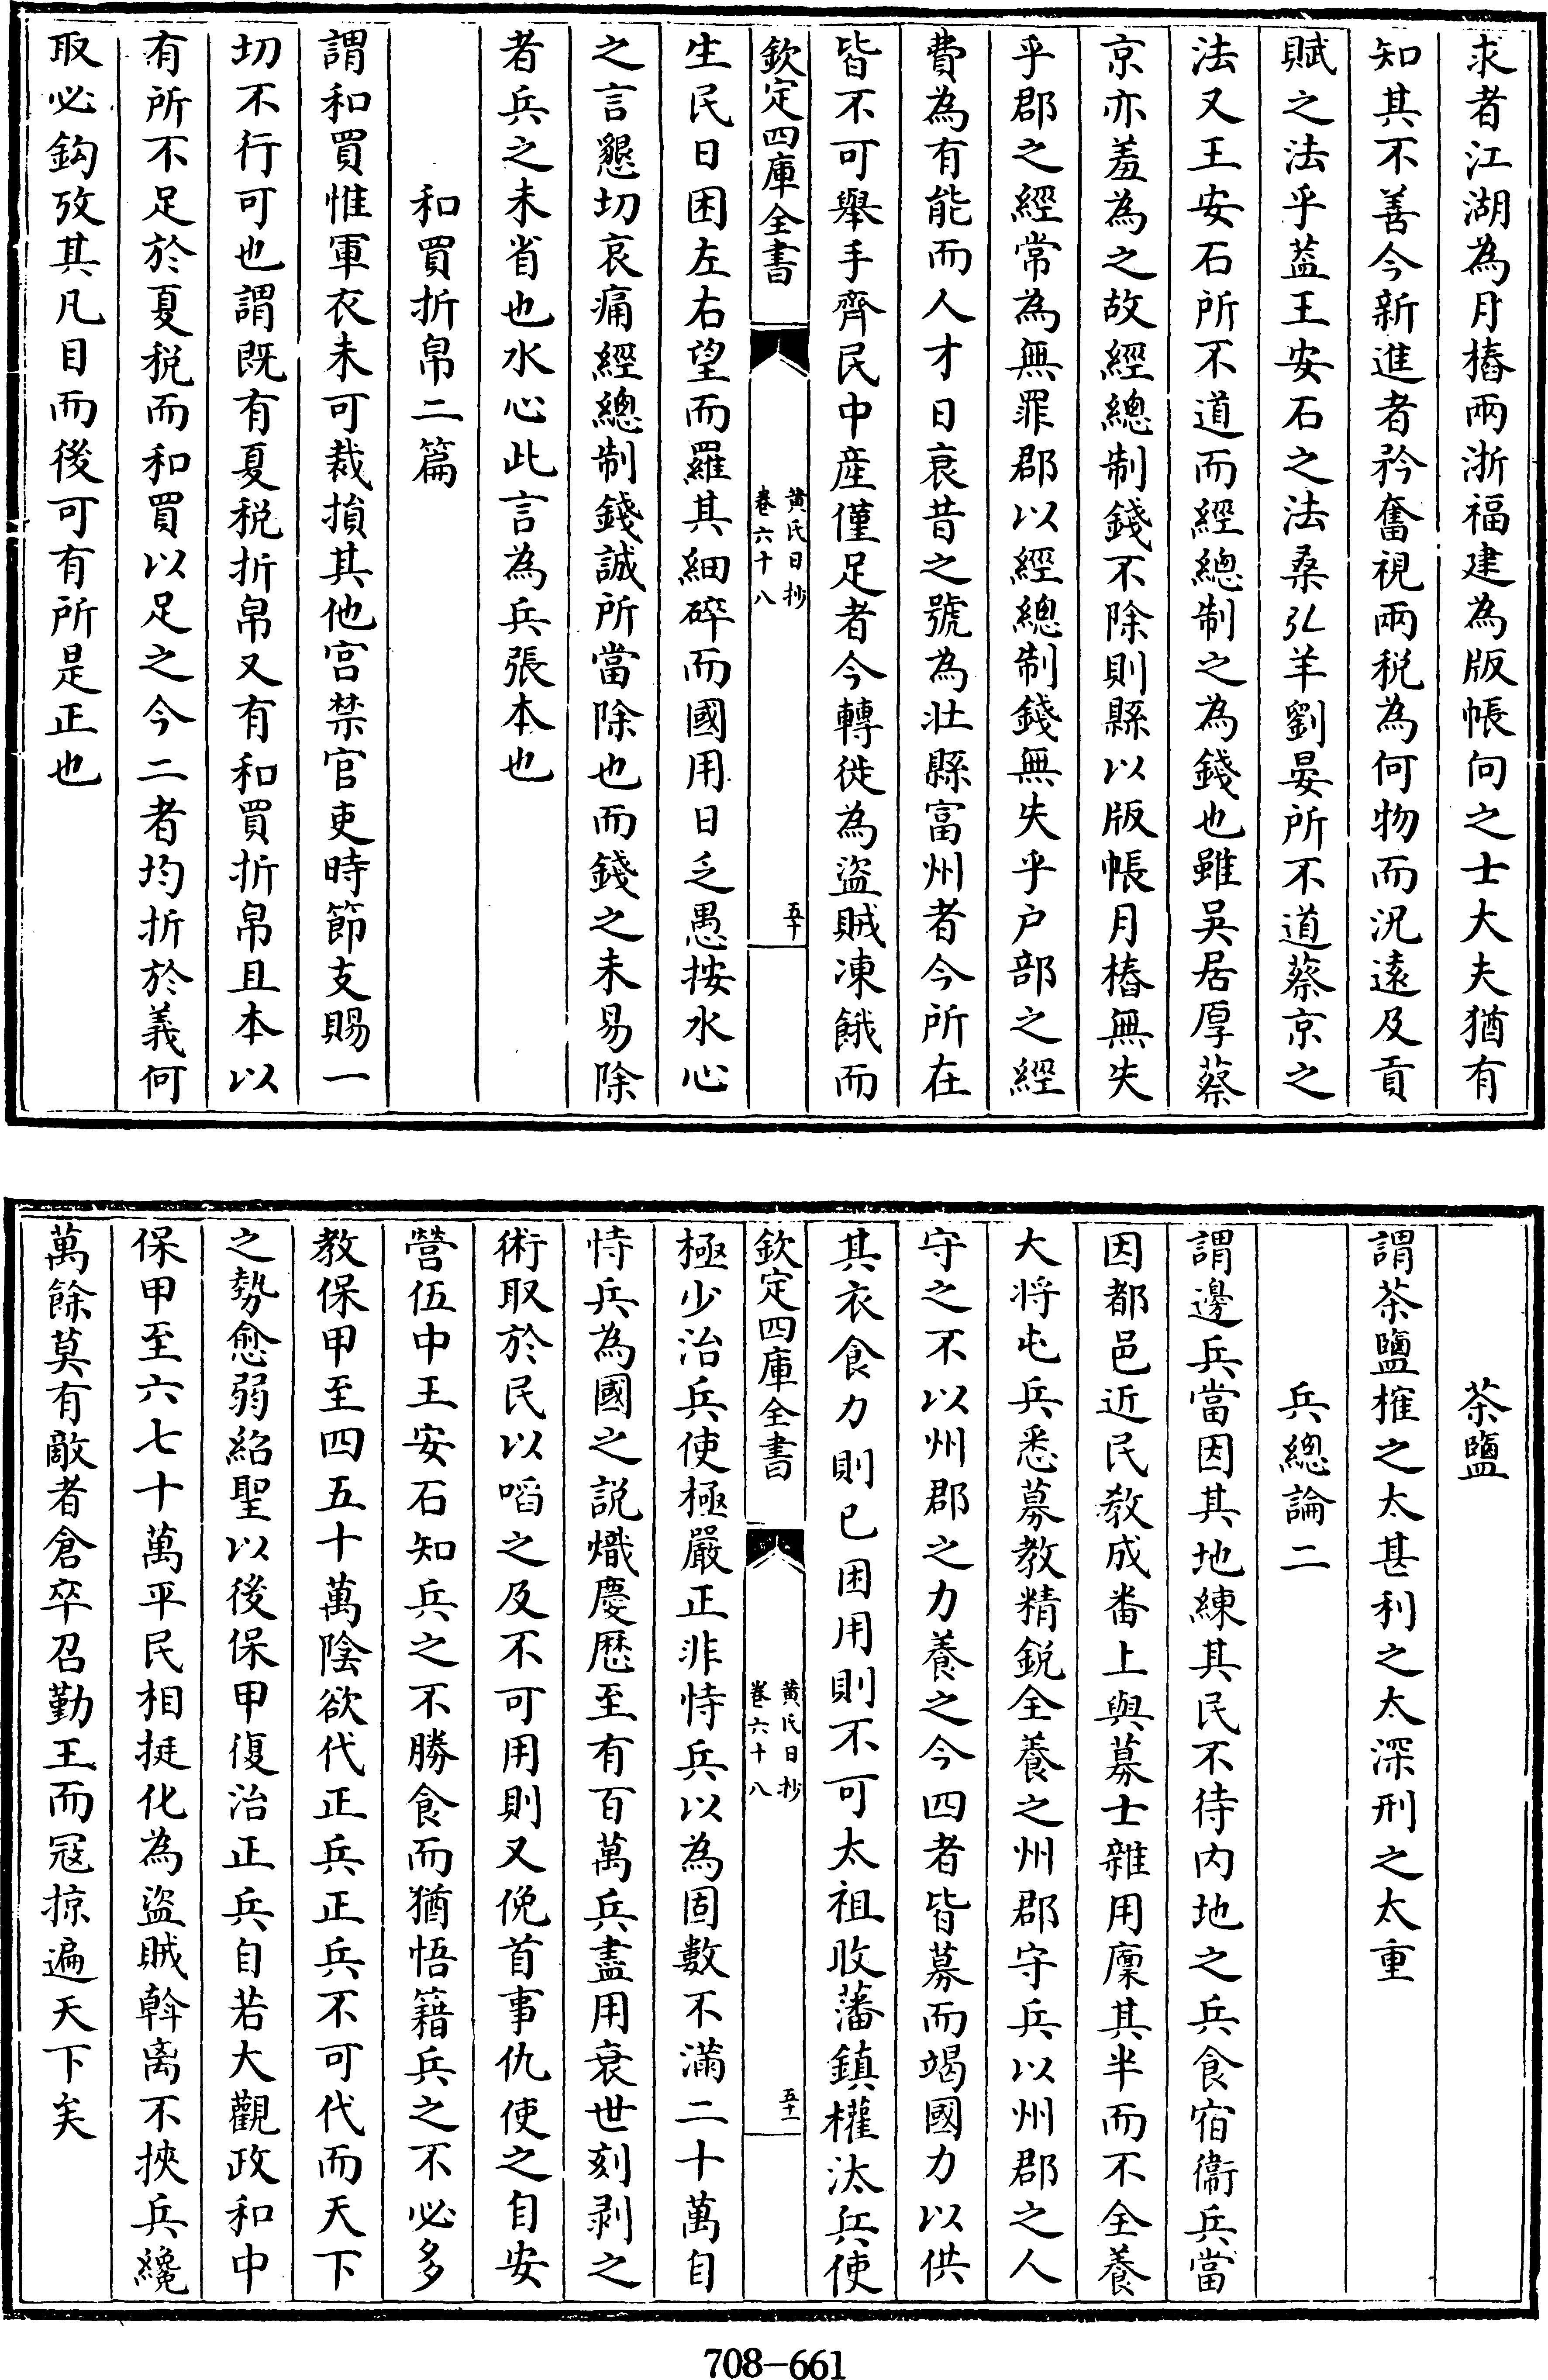 求者江湖為月樁兩浙福建為版帳向之士大夫猶有
知其不善今新進者矜奮視兩税為何物而況遠及貢
賦之法乎葢王安石之法桑弘羊劉晏所不道蔡京之
法又王安石所不道而經總制之為錢也雖吳居厚蔡
京亦羞為之故經總制錢不除則縣以版帳月樁無失
乎郡之經常為無罪郡以經總制錢無失乎户部之經
費為有能而人才日衰昔之號為壯縣富州者今所在
皆不可舉手齊民中産僅足者今轉徙為盜賊凍餓而
欽定四庫全書
黄氏日抄
卷六十八
五十
生民日困左右望而羅其細碎而國用日乏愚按水心
之言懇切哀痛經總制錢誠所當除也而錢之未易除
者兵之未省也水心此言為兵張本也
和買折帛二篇
謂和買惟軍衣未可裁損其他宫禁官吏時節支賜一
切不行可也謂既有夏税折帛又有和買折帛且本以
有所不足於夏税而和買以足之今二者均折於義何
取必鈎攷其凡目而後可有所是正也
茶鹽
謂茶鹽榷之太甚利之太深刑之太重
兵總論二
謂邊兵當因其地練其民不待内地之兵食宿衞兵當
因都邑近民教成畨上與募士雜用廪其半而不全養
大将屯兵悉募教精鋭全養之州郡守兵以州郡之人
守之不以州郡之力養之今四者皆募而竭國力以供
其衣食力則已困用則不可太祖收藩鎮權汰兵使
欽定四庫全書
黄氏日抄
卷六十八
五十一
極少治兵使極嚴正非恃兵以為固數不滿二十萬自
恃兵為國之説熾慶厯至有百萬兵盡用衰世刻剥之
術取於民以㗖之及不可用則又俛首事仇使之自安
營伍中王安石知兵之不勝食而猶悟籍兵之不必多
教保甲至四五十萬陰欲代正兵正兵不可代而天下
之勢愈弱紹聖以後保甲復治正兵自若大觀政和中
保甲至六七十萬平民相挻化為盜賊斡离不挾兵纔
萬餘莫有敵者倉卒召勤王而冦掠遍天下矣
708-661